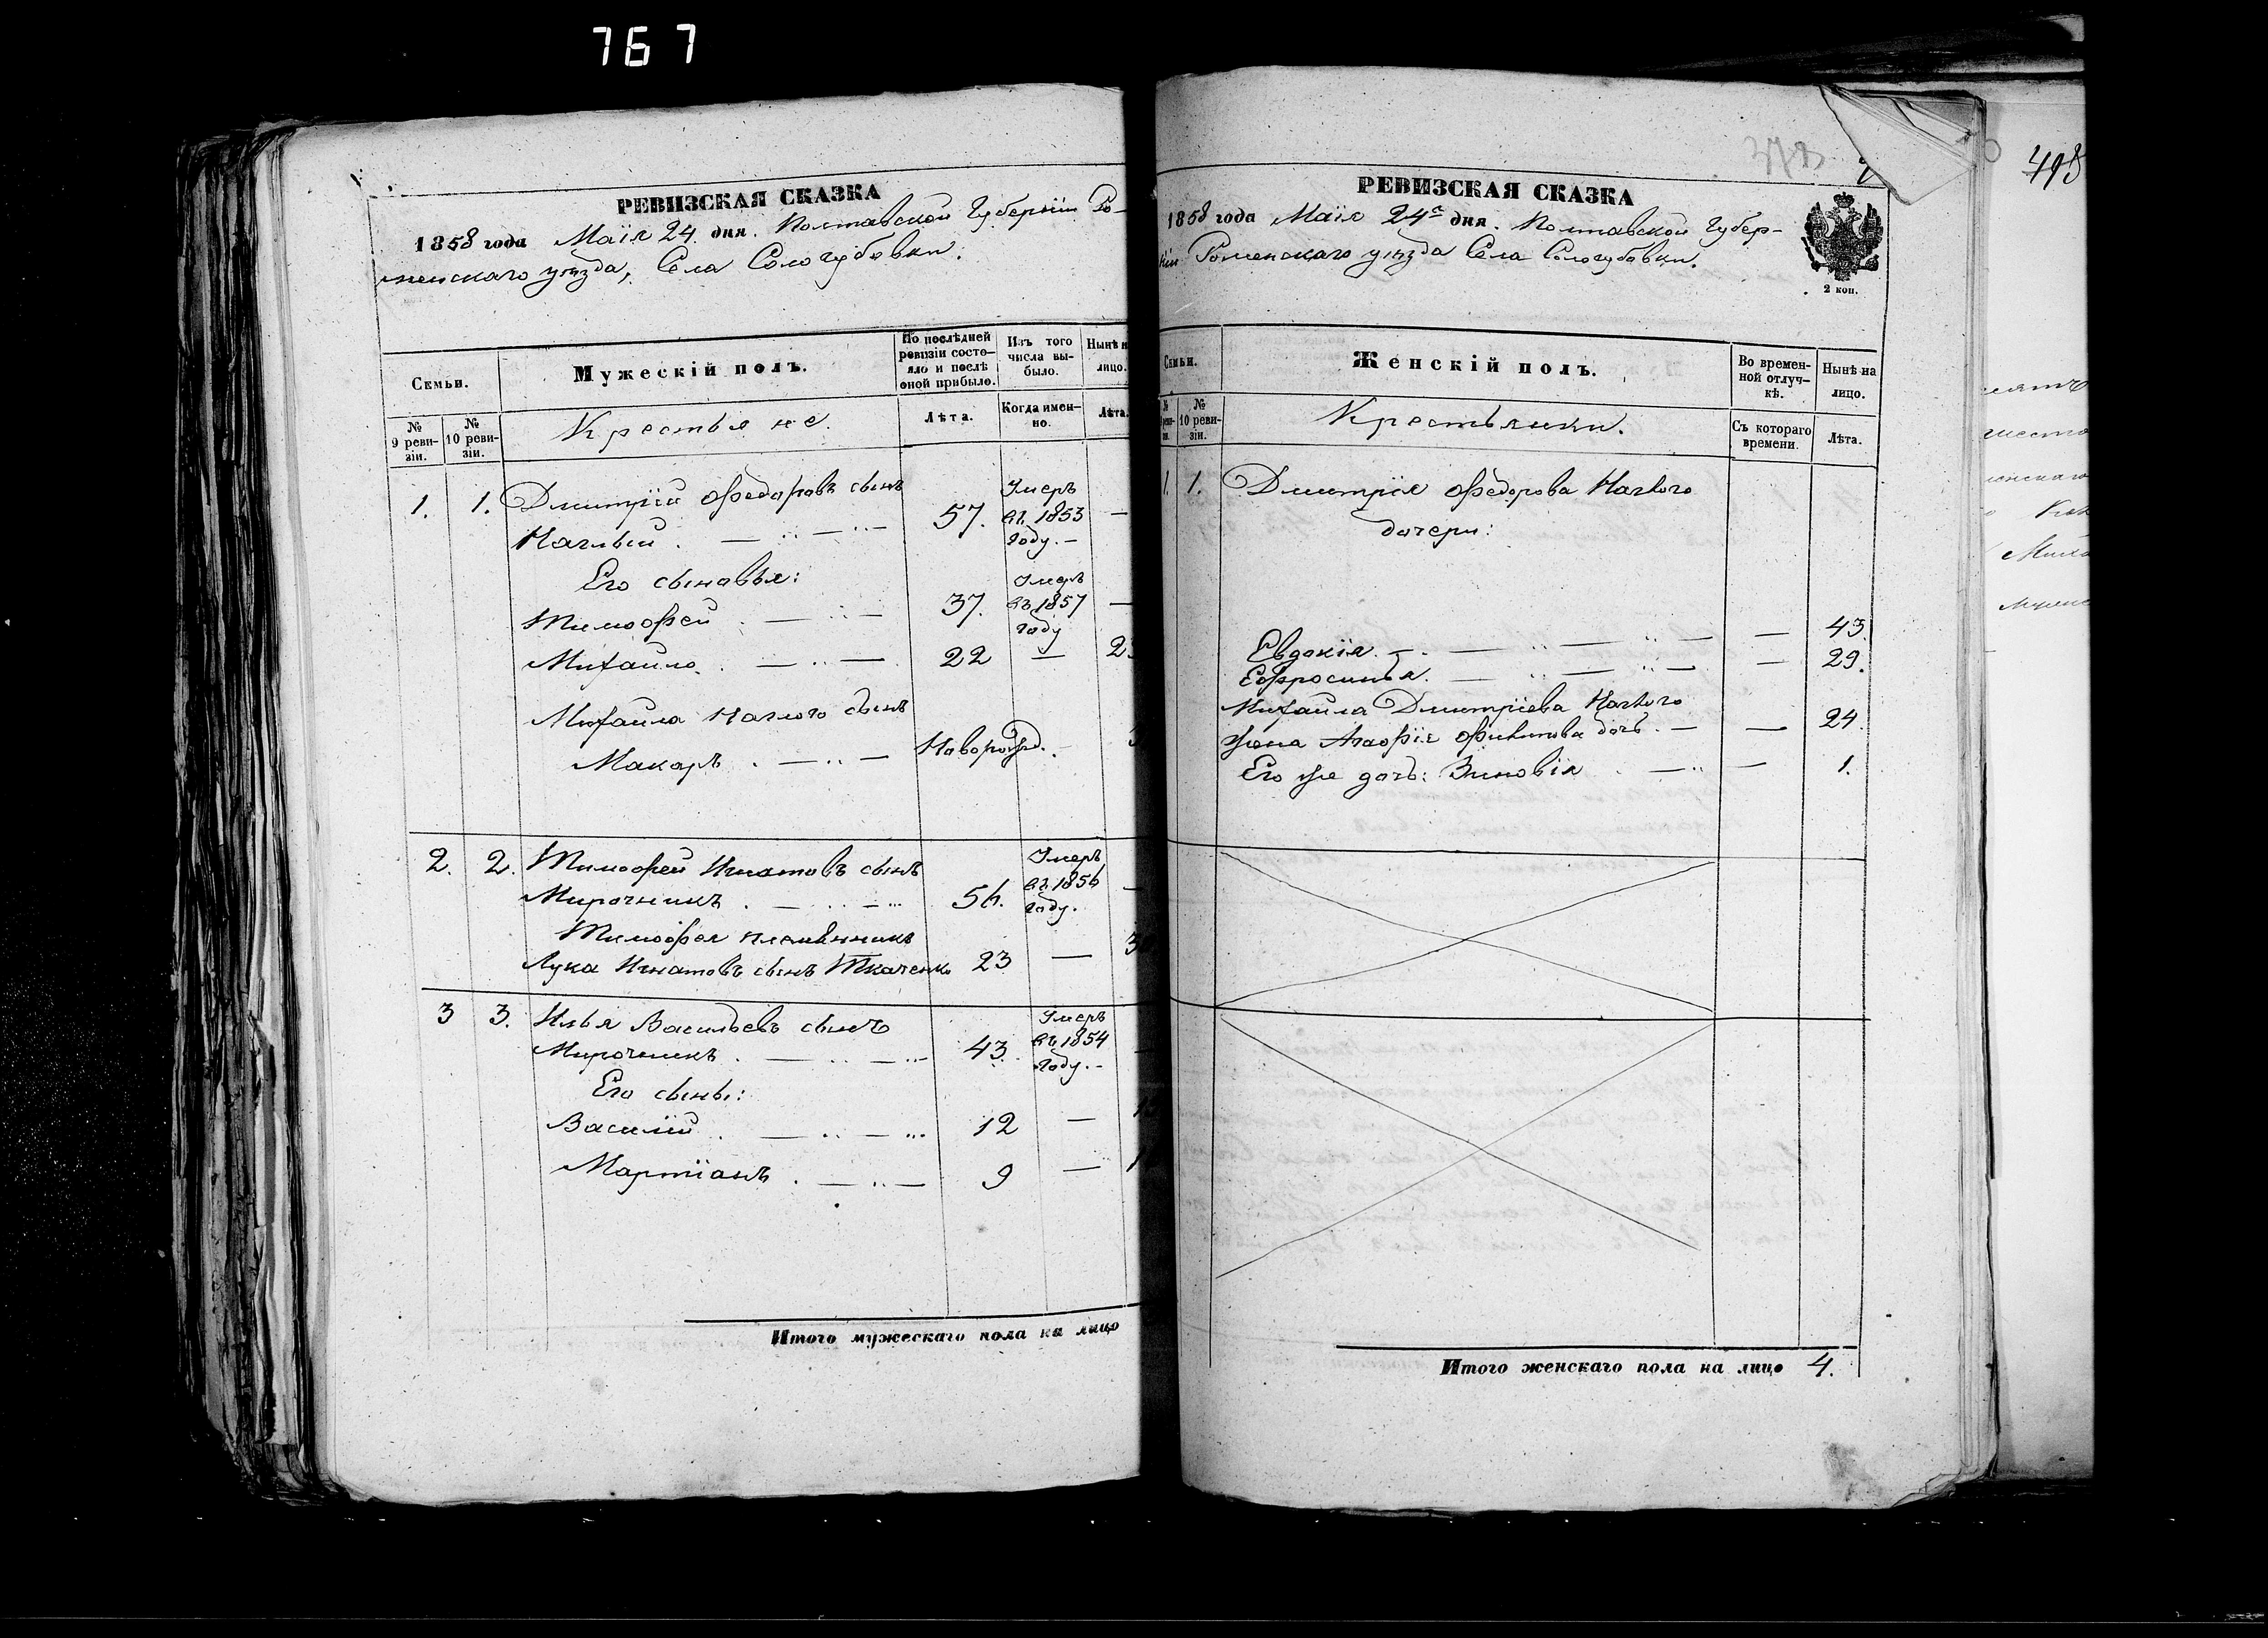 767
РЕВИЗСКАЯ СКАЗКА
1858 года Маія 24. дня. Полтавской Губерніи Ро-
менскаго уѣзда, Села Сологубовки.
Семьи.
Мужескій полъ.
По послѣдней ревизіи состо-яло и послѣ оной прибыло.
Изъ того числа вы-было.
Нынѣ на лицо.
№ 9 реви-зіи.
№ 10 реви-зіи.
Крестьяне.
Лѣта.
Когда имен-но.
Лѣта.
1. 1. Дмитрій Федоровъ сынъ
Наглый. 57. Умеръ въ 1853 году. —
Его сыновья:
Тимофей 37. Умеръ въ 1857 году —
Михайло. 22 —
Михайла Наглого сынъ
Макаръ. Новорожд.
2. 2. Тимофей Игнатовъ сынъ
Мирочникъ. 56. Умеръ въ 1856 году.
Тимофея племянникъ
Лука Игнатовъ сынъ Ткаченко 23 —
3 3. Илья Васильевъ сынъ
Мирочникъ. 43. Умеръ въ 1854 году.
Его сыны:
Василій 12 —
Мартіанъ. 9 —
Итого мужескаго пола на лицо
РЕВИЗСКАЯ СКАЗКА
1858 года Маія 24 дня. Полтавской Губер-
ніи Роменскаго уѣзда Села Сологубовки.
2 коп.
Семьи.
Женскій полъ.
Во времен-ной отлуч-кѣ.
Нынѣ на лицо.
№ 10 реви-зіи.
Крестьянки.
Съ котораго времени.
Лѣта.
1. 1. Дмитрія Федорова Наглого
дочери:
Евдокія. — 43.
Ефросинья. — 29.
Михайла Дмитріева Наглого
жена Агафія дочь. — 24.
Его же дочь: Зиновія — 1.
Итого женскаго пола на лицо 4.